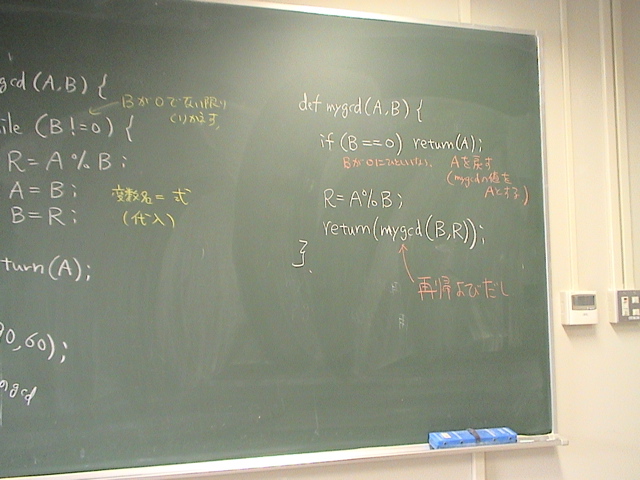 gcd(A,B) {
Bが0でない限り
くりかえす
ile (B!=0) {
R=A%B;
A=B;
B=R;
変数名=式
(代入)
turn(A);
90,60);
mygcd
def mygcd(A,B) {
if (B==0) return(A);
Bが0にひとしいなら
Aを戻す
(mygcdの値を
Aとする)
R=A%B;
return(mygcd(B,R));
}
再帰よびだし